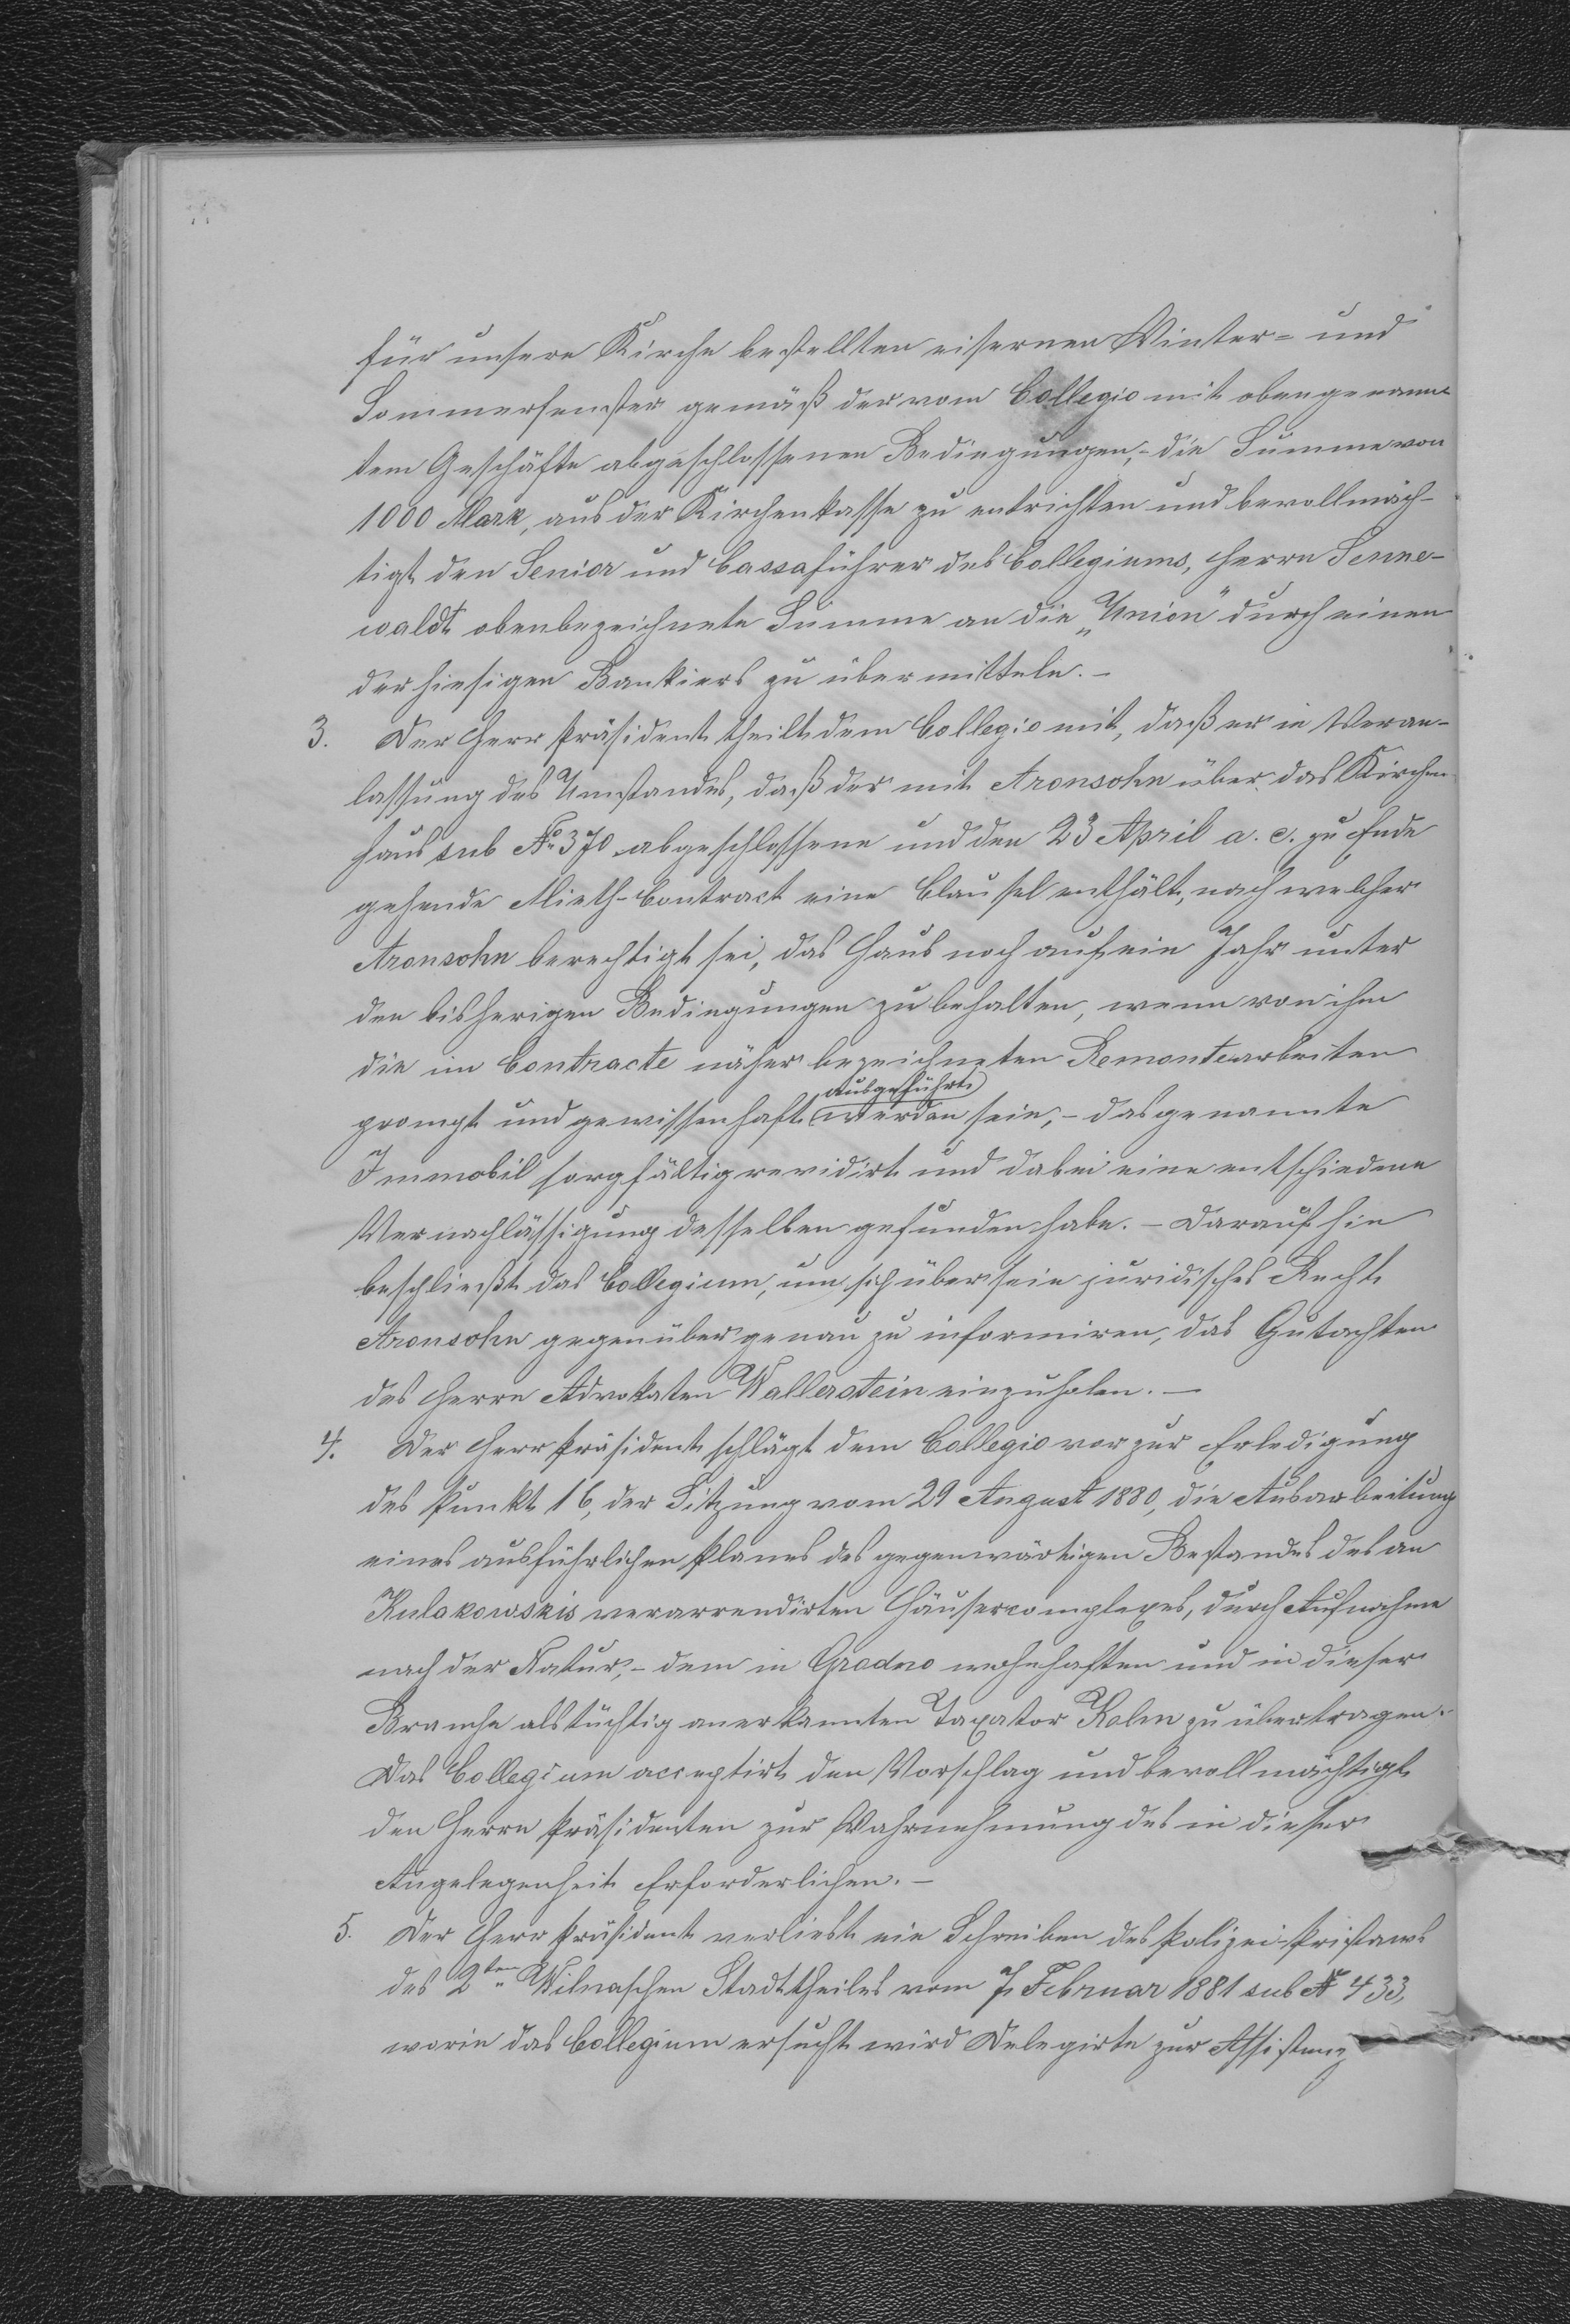 für unsere Kirche bestellten eisernen Winter- und
Sommerfenster gemäß der vom Collegio mit obengenann-
tem Geschäfte abgeschlossenen Bedingungen,- die Summe von
1000 Mark, aus der Kirchenkasse zu entrichten und bevollmäch-
tigt den Senior und Cassaführer des Collegiums, Herrn Senne-
waldt obenbezeichnete Summe an die „Union" durch einen
der hiesigen Bankiers zu übermitteln.-
3. Der Herr Präsident theilt dem Collegio mit, daß er in Veran-
lassung des Umstandes, daß der mit Aronsohn über das Kirchen-
haus sub № 370 abgeschlossene und den 23 April a. c. zu Ende
gehende Mieth-Contract eine Clausel enthält, nach welcher
Aronsohn berechtigt sei, das Haus noch auf ein Jahr unter
den bisherigen Bedingungen zu behalten, wenn von ihm
die im Contracte näher bezeichneten Remontearbeiten
ausgeführt
prompt und gewissenhaft werden sein,- das genannte
Immobil sorgfältig revidirt und dabei eine entschiedene
Vernachlässigung desselben gefunden habe. - Darauf hin
beschließt das Collegium, um sich über sein juridisches Recht
Aronsohn gegenüber genau zu informiren, das Gutachten
des Herrn Advokaten Wallerstein einzuholen.-
4. Der Herr Präsident schlägt dem Collegio vor zur Erledigung
des Punkt 16, der Sitzung vom 29 August 1880, die Ausarbeitung
eines ausführlichen Planes des gegenwärtigen Bestandes des an
Kulakowskis verarrendirten Häusercomplexes, durch Aufnahme
nach der Natur,- dem in Grodno wohnhaften und in dieser
Branche als tüchtig anerkannten Taxator Kalm zu übertragen.-
Das Collegium acceptirt den Vorschlag und bevollmächtigt
den Herrn Präsidenten zur Wahrnehmung des in dieser
Angelegenheit Erforderlichen.-
5. Der Herr Präsident verliest ein Schreiben des Polizei-Pristaws
des 2ten Wilnaschen Stadttheiles vom 7 Februar 1881 sub № 433,
worin das Collegium ersucht wird Delegirte zur Assistenz